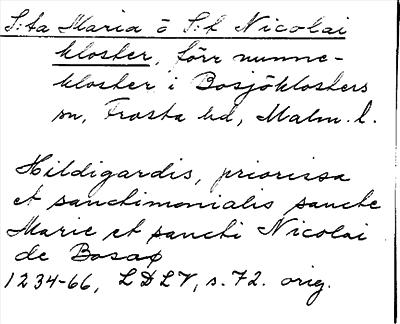 S:ta Maria o S:t Nicolai
kloster, förr nunne-
kloster i Bosjöklosters
sn, Frosta hd, Malm. l.
Hildigardis, priorissa
et sanctimonialis sancte
Marie et sancti Nicolai
de Bosaø
1234-66, LDLV, s. 72. orig.